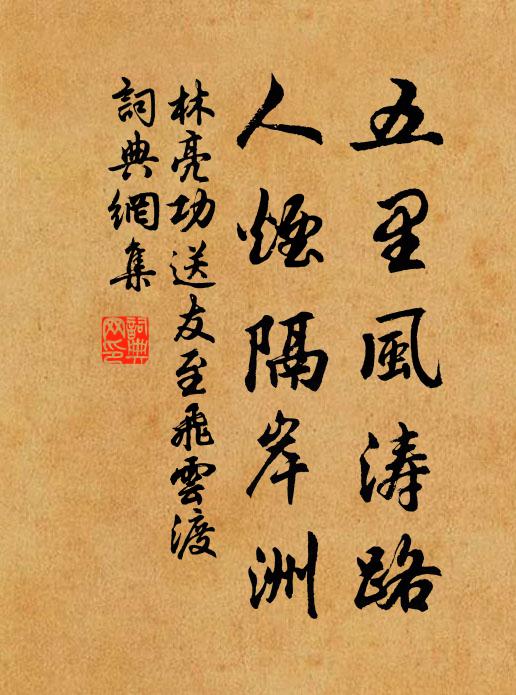 五里風涛路
人煙隔岸洲
林亮功送友至飛雲渡
詞典網集
詞典网印